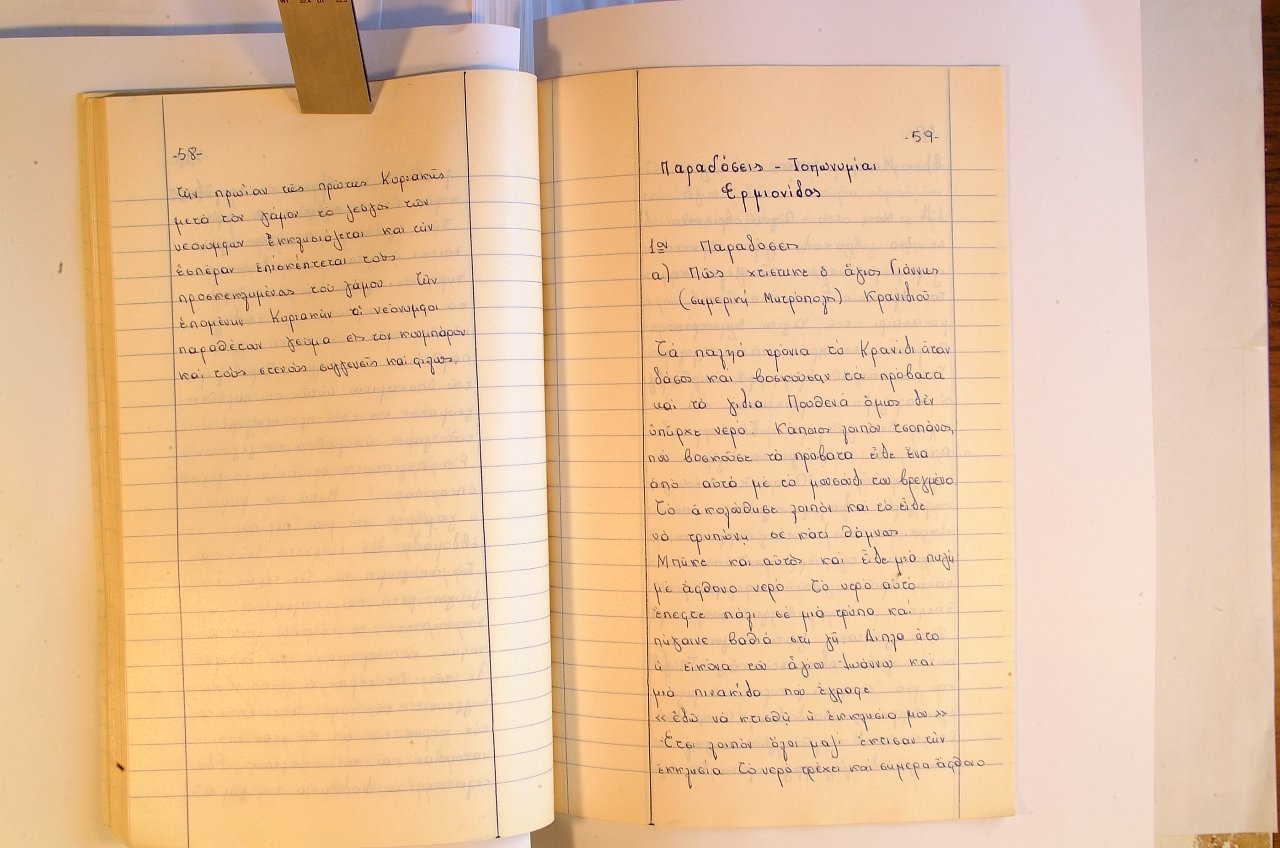 -58-
τὴν πρωΐαν τῆς πρώτης Κυριακῆς
μετά τὸν γάμον τὸ ζεῦγος τῶν
νεονύμφων ἐκκλησιάζεται καὶ τὴν
ἑσπέραν ἐπισκέπτεται τοὺς
προσκεκλημένας τοῦ γάμου. Τὴν
ἑπομένην Κυριακὴν οἱ νεόνυμφοι
παραθέτουν γεῦμα εἰς τὸν κουμπάρον
καὶ τοὺς στενοὺς συγγενεῖς καὶ φίλους.
-59-
Παραδόσεις - Τοπωνυμίαι
Ἑρμιονίδος
1ον Παραδόσεις
α) Πῶς χτίστηκε ὁ ἅγιος Γιάννης
(σημερινή Μητρόπολη) Κρανιδίου
Τὰ παλῃά χρόνια τὸ Κρανίδι ἦταν
δάσος καὶ βοσκοῦσαν τὰ πρόβατα
καὶ τὰ γίδια Πουθενά ὅμως δὲν
ὑπῆρχε νερό. Κάποιος λοιπὸν τσοπάνος,
ποὺ βοσκοῦσε τὰ πρόβατα εἶδε ἕνα
ἀπὸ αὐτά μὲ τὸ μουσούδι του βρεγμένο.
Τὸ ἀκολούθησε λοιπὸν καὶ τὸ εἶδε
νὰ τρυπώνῃ σὲ κάτι θάμνους
Μπῆκε καὶ αὐτὸς καὶ εἶδε μιὰ πηγή
μὲ ἄφθονο νερό Τὸ νερό αὐτό
ἔπεφτε πάλι σὲ μιὰ τρύπα καὶ
πήγαινε βαθιά στὴ γῆ Δίπλα ἦτο
ἡ εἰκόνα τοῦ ἁγίου Ἰωάννου καὶ
μιὰ πινακίδα ποὺ ἔγραφε
«ἐδῶ νὰ κτισθῇ ἡ ἐκκλησία μου»
Ἔτσι λοιπὸν ὅλοι μαζί ἔκτισαν τὴν
ἐκκλησία. Τὸ νερό τρέχει καὶ σήμερα ἄφθονο